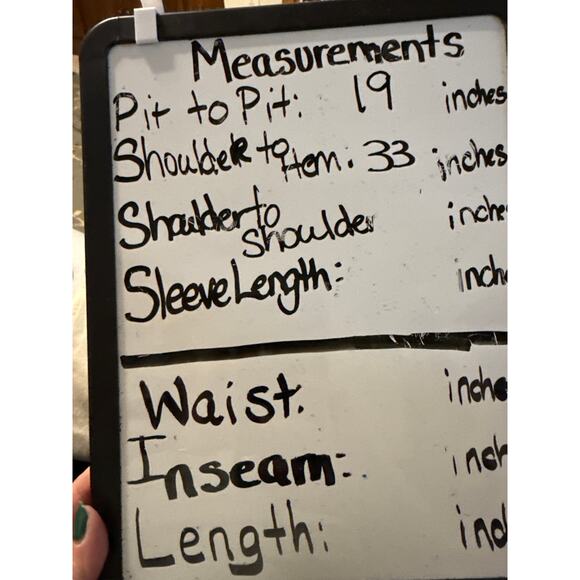 Measurements
Pit to Pit: 19 inches
Shoulder to Hem: 33 inches
Shoulder to Shoulder inches
Sleeve Length: inches
Waist: inches
Inseam: inch
Length: inc